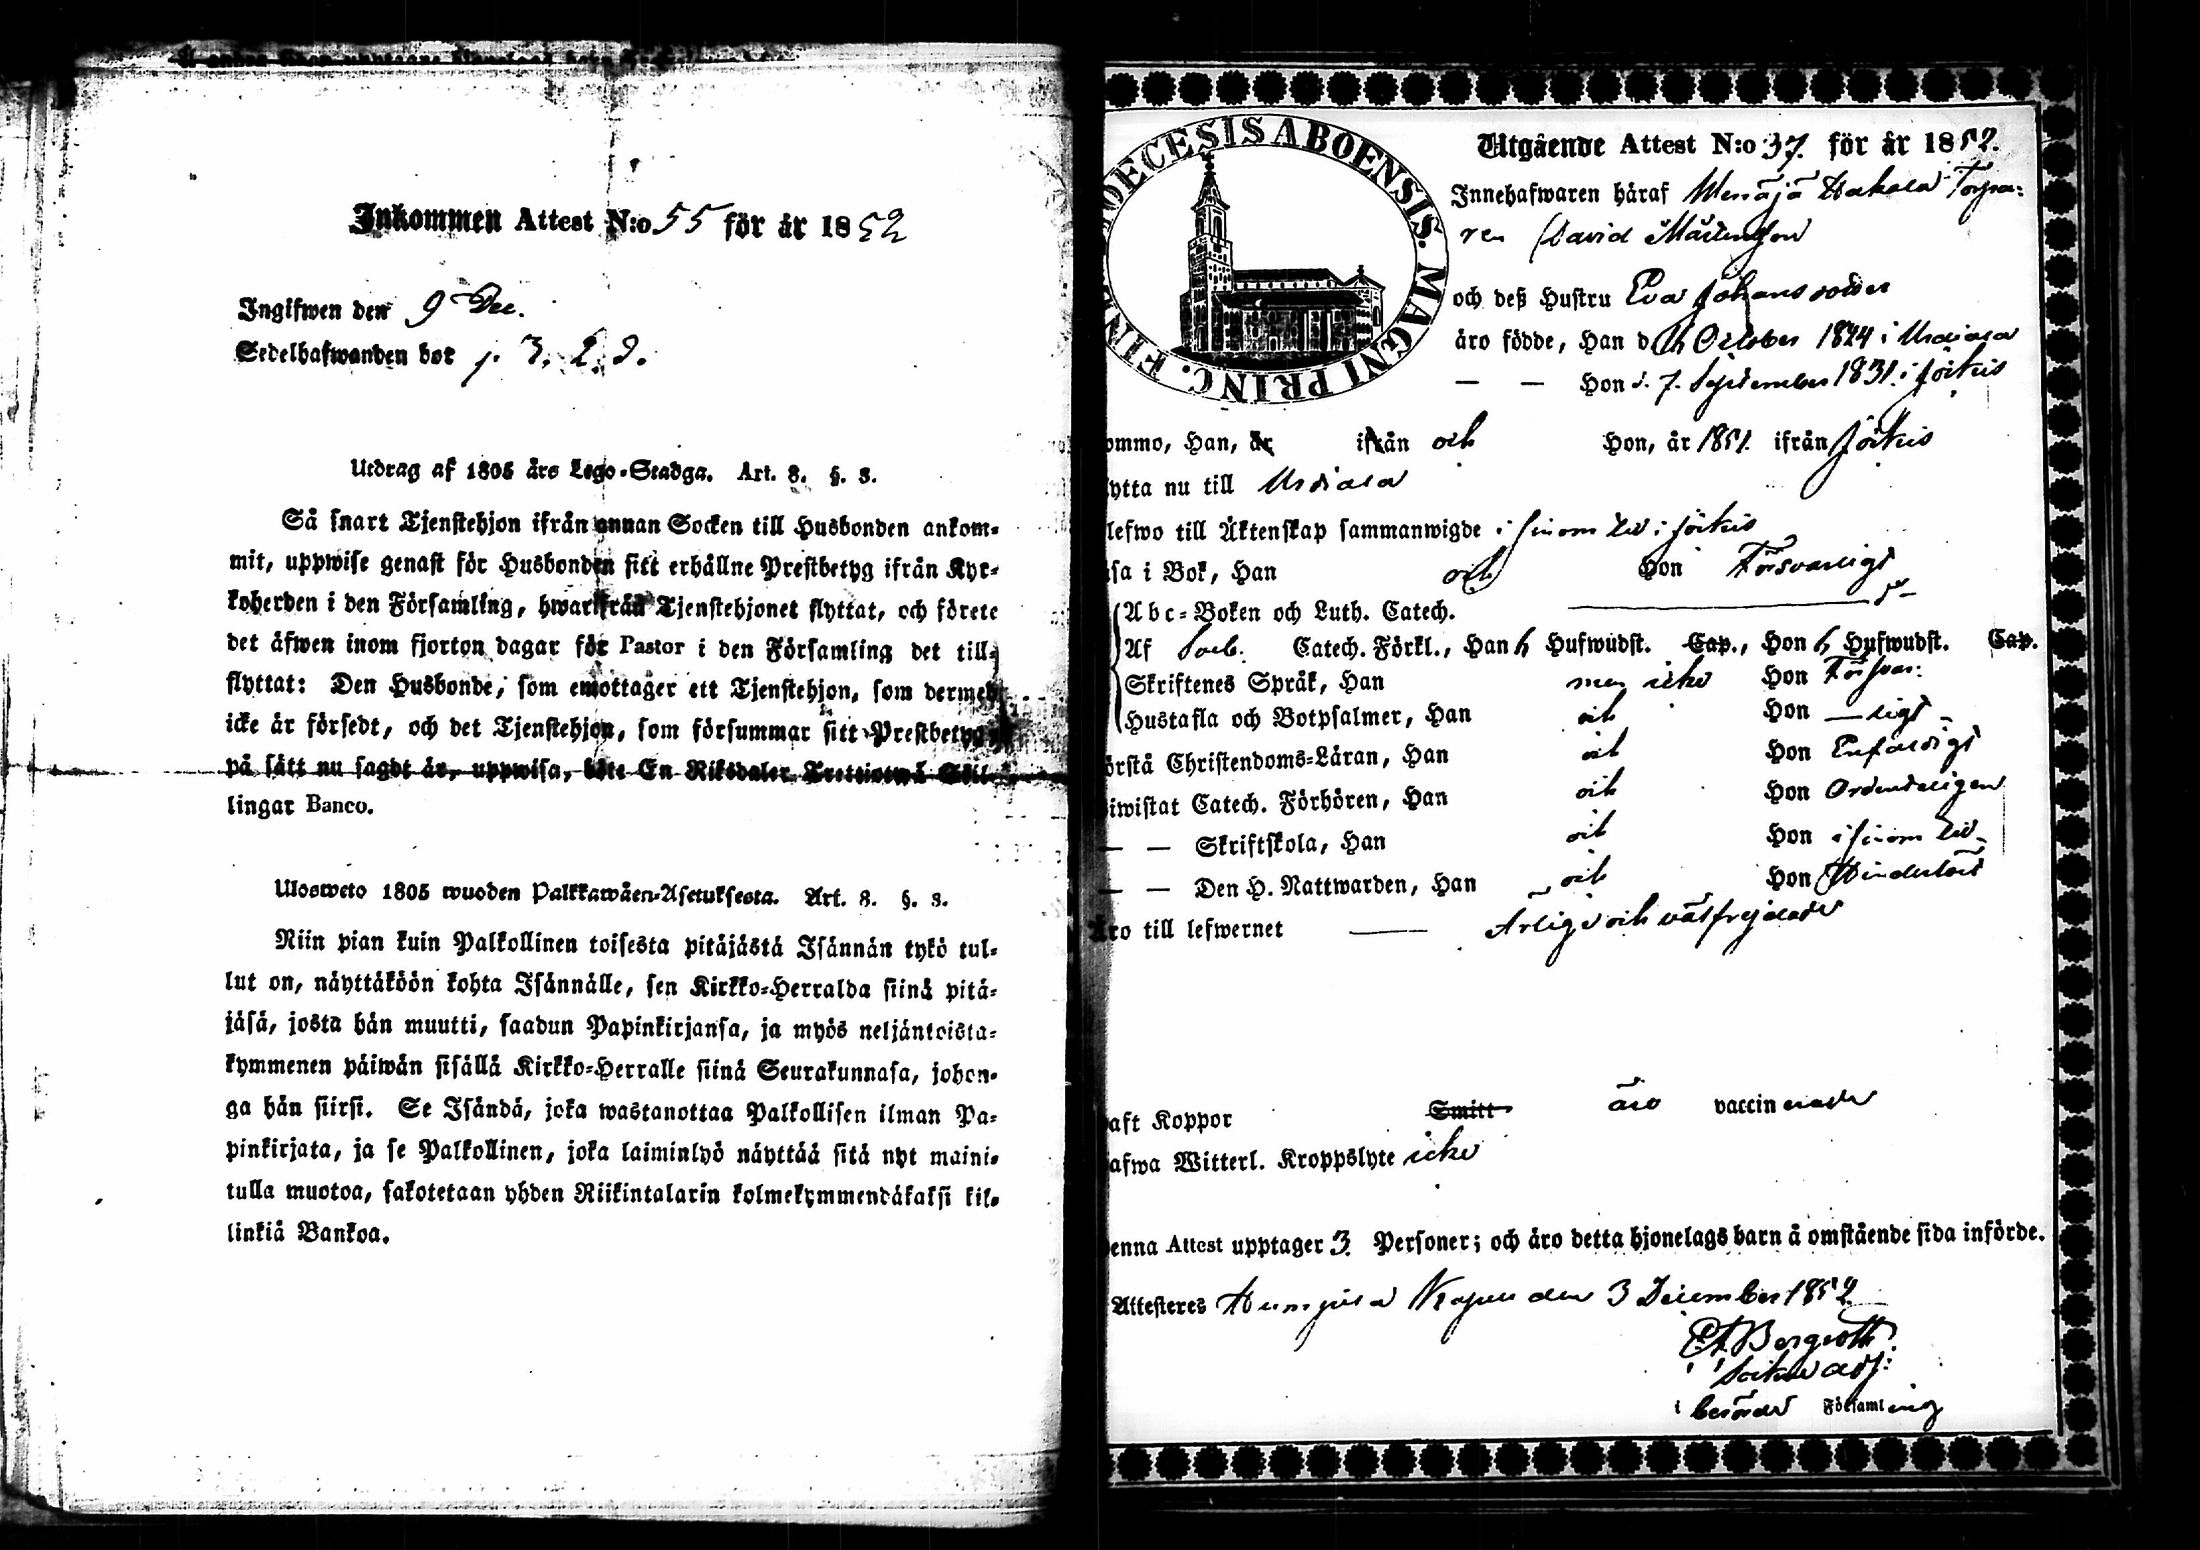 Inkommen Attest N:o 55 för år 1852
Ingifwen den 9 Dec.
Sedelhafwanden bor p. 3.
Utdrag af 1805 års Lego-Stadga. Art. 8. §. 3.
Så snart Tjenstehjon ifrån annan Socken till Husbonden ankom-
mit, uppwise genast för Husbonden sitt erhållne Prestbetyg ifrån Kyr-
koherden i den Församling, hwarifrån Tjenstehjonet flyttat, och förete
det äfwen inom fjorton dagar för Pastor i den Församling det till-
flyttat: Den Husbonde, som emottager ett Tjenstehjon, som dermed
icke är försedt, och det Tjenstehjon, som försummar sitt Prestbetyg
på sätt nu sagdt är, uppwisa, böte En Riksdaler Trettiotwå Skil-
lingar Banco.
Ulosweto 1805 wuoden Palkkawäen-Asetuksesta. Art. 8. §. 3.
Niin pian kuin Palkollinen toisesta pitäjästä Isännän tykö tul-
lut on, näyttäköön kohta Isännälle, sen Kirkko-Herralda siinä pitä-
jäsä, josta hän muutti, saadun Papinkirjansa, ja myös neljäntoista-
kymmenen päiwän sisällä Kirkko-Herralle siinä Seurakunnasa, johon-
ga hän siirsi. Se Isändä, joka wastanottaa Palkollisen ilman Pa-
pinkirjata, ja se Palkollinen, joka laiminlyö näyttää sitä nyt maini-
tulla muotoa, sakotetaan yhden Riikintalarin kolmekymmendäkaksi kil-
linkiä Bankoa.
DIOECESIS ABOENSIS. MAGNI PRINC. FIN
Utgående Attest N:o 37. för år 1852.
Innehafwaren häraf Hakala Torpa-
ren David Mårtensson
och deß Hustru Eva Johansdotter
äro födde, Han d. October 1824 i Urdiala
— — Hon d. 7. September 1831. i Jockis
ommo, Han, år ifrån och Hon, år 1851. ifrån Jockis
ytta nu till Urdiala
lefwo till Äktenskap sammanwigde i sinom tid i Jockis
sa i Bok, Han och Hon Försvarligt
Abc-Boken och Luth. Catech.
Af Sveb. Catech. Förkl., Han 6 Hufwudst. Cap., Hon 6 Hufwudst. Cap.
Skriftenes Språk, Han men icke Hon Försvar-
Hustafla och Botpsalmer, Han och Hon —ligt
örstå Christendoms-Läran, Han och Hon Enfaldigt
iwistat Catech. Förhören, Han och Hon Ordenteligen
— — Skriftskola, Han och Hon i sinom tid
— — Den H. Nattwarden, Han och Hon Hinderlöst
Äro till lefwernet — Ärlige och välfrejdade
aft Koppor Smitt äro vaccinerade
afwa Witterl. Kroppslyte icke
enna Attest upptager 3 Personer; och äro detta hjonelags barn å omstående sida införde.
Attesteres Humppila Kapell den 3 December 1852
Bergroth
Sockne adj:
i berörde Församling